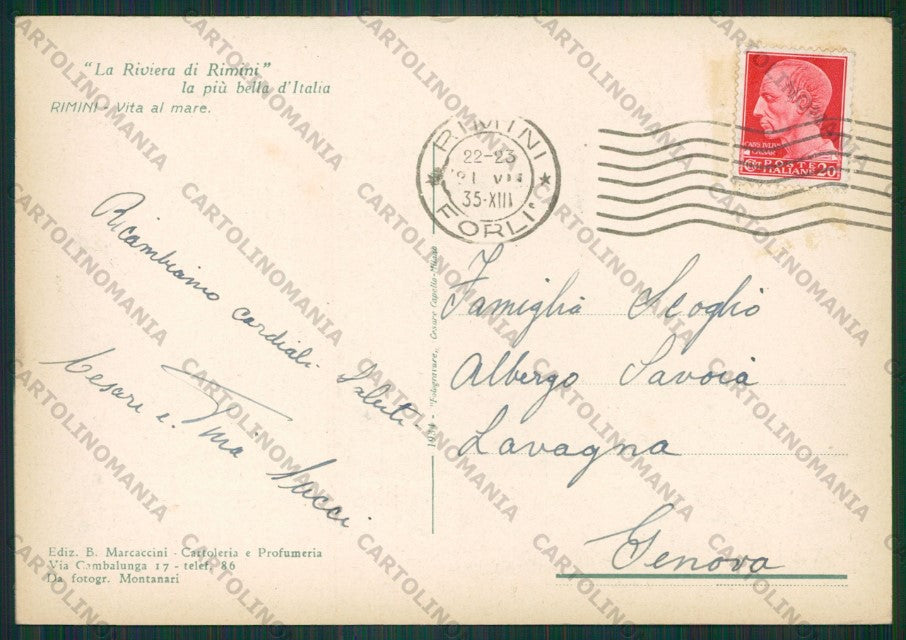 "La Riviera di Rimini"
la più bella d'Italia
RIMINI - Vita al mare.
RIMINI
22-23
35·XIII
FORLI
POSTE
ITALIANE 20
Ricambiamo cordiali Saluti
Cesare e
Succi
Famiglia Scoglio
Albergo Savoia
Lavagna
Genova
Ediz. B. Marcaccini - Cartoleria e Profumeria
Via Gambalunga 17 - telef. 86
Da fotogr. Montanari
CARTOLINOMANIA